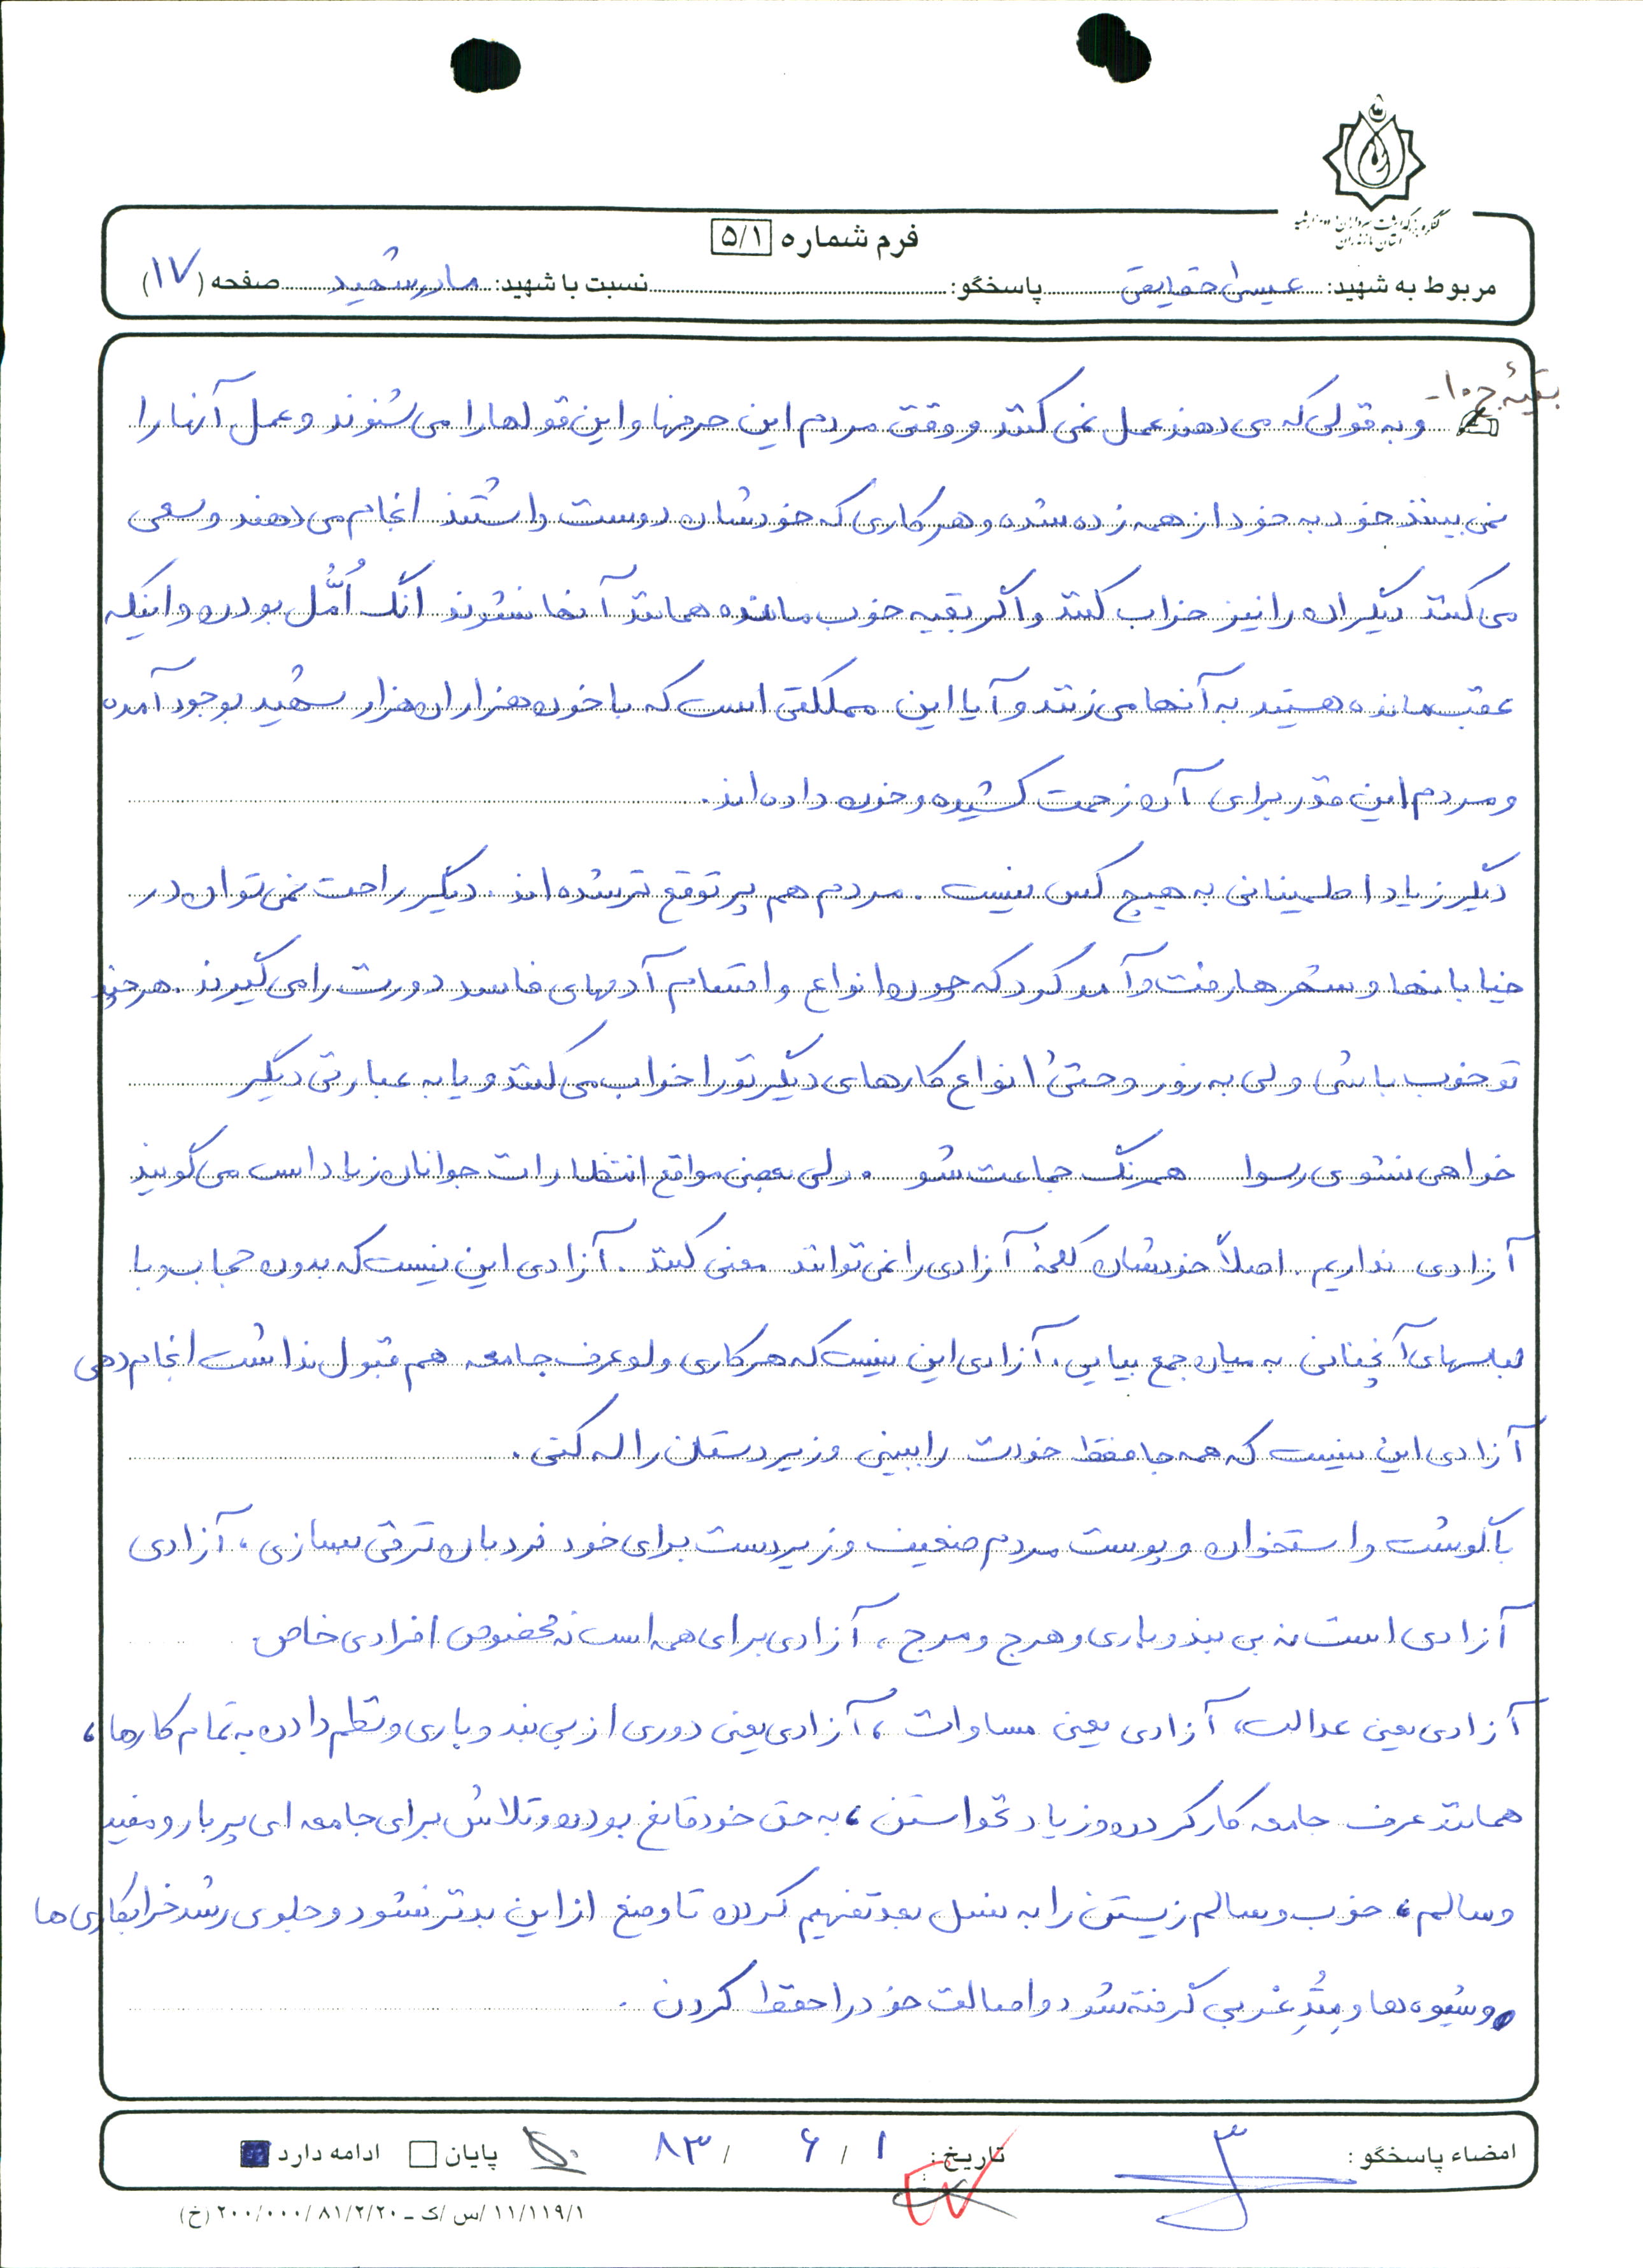 کنگره بزرگداشت سرداران و ۱۰۰۰۰ شهید
استان مازندران
فرم شماره ۵/۱
مربوط به شهید: عیسی حقایقی پاسخگو: نسبت با شهید: مادر شهید صفحه (۱۷)
بقیهٔ ج ۱۰-
و به قولی که می دهند عمل نمی کنند و وقتی مردم این حرفها و این قولها را می شنوند و عمل آنها را
نمی بینند خود به خود از همه زده شده و هر کاری که خودشان دوست داشتند انجام می دهند و سعی
می کنند دیگران را نیز خراب کنند و اگر بقیه خوب مانده همانند آنها نشوند انگ اُمُّل بودن و اینکه
عقب مانده هستند به آنها می زنند و آیا این مملکتی است که با خون هزاران هزار شهید بوجود آمده
و مردم این قدر برای آن زحمت کشیده و خون داده اند.
دیگر زیاد اطمینانی به هیچ کس نیست. مردم هم پر توقع تر شده اند. دیگر راحت نمی توان در
خیابانها و شهرها رفت و آمد کرد که چون انواع و اقسام آدمهای فاسد دورت را می گیرند. هر چند
تو خوب باشی ولی به زور و حتیٰ انواع کارهای دیگر تو را خراب می کنند و یا به عبارتی دیگر
خواهی نشوی رسوا همرنگ جماعت شو. ولی بعضی مواقع انتظارات جوانان زیاد است می گویند
آزادی نداریم. اصلاً خودشان کلمهٔ آزادی را نمی توانند معنی کنند. آزادی این نیست که بدون حجاب و با
لباسهای آنچنانی به میان جمع بیایی. آزادی این نیست که هر کاری ولو عرف جامعه هم قبول نداشت انجام دهی
آزادی این نیست که همه جا فقط خودت را ببینی و زیر دستان را له کنی.
با گوشت و استخوان و پوست مردم ضعیف و زیر دست برای خود نردبان ترقی بسازی، آزادی
آزادی است نه بی بند و باری و هرج و مرج، آزادی برای همه است نه مخصوص افرادی خاص.
آزادی یعنی عدالت، آزادی یعنی مساوات، آزادی یعنی دوری از بی بند و باری و نظم دادن به تمام کارها،
همانند عرف جامعه کار کردن و زیاد نخواستن، به حق خود قانع بودن و تلاش برای جامعه ای پر بار و مفید
و سالم، خوب و سالم زیستن را به نسل بعد تفهیم کردن تا وضع از این بدتر نشود و جلوی رشد خرابکاری ها
و شیوه ها و مُدِ غربی گرفته شود و اصالت خود را حفظ کردن.
امضاء پاسخگو: تاریخ: ۱ / ۶ / ۸۳ پایان ادامه دارد
۱۱/۱۱۹/۱ /س /ک ـ ۸۱/۲/۲۰ /۲۰۰/۰۰۰ (خ)